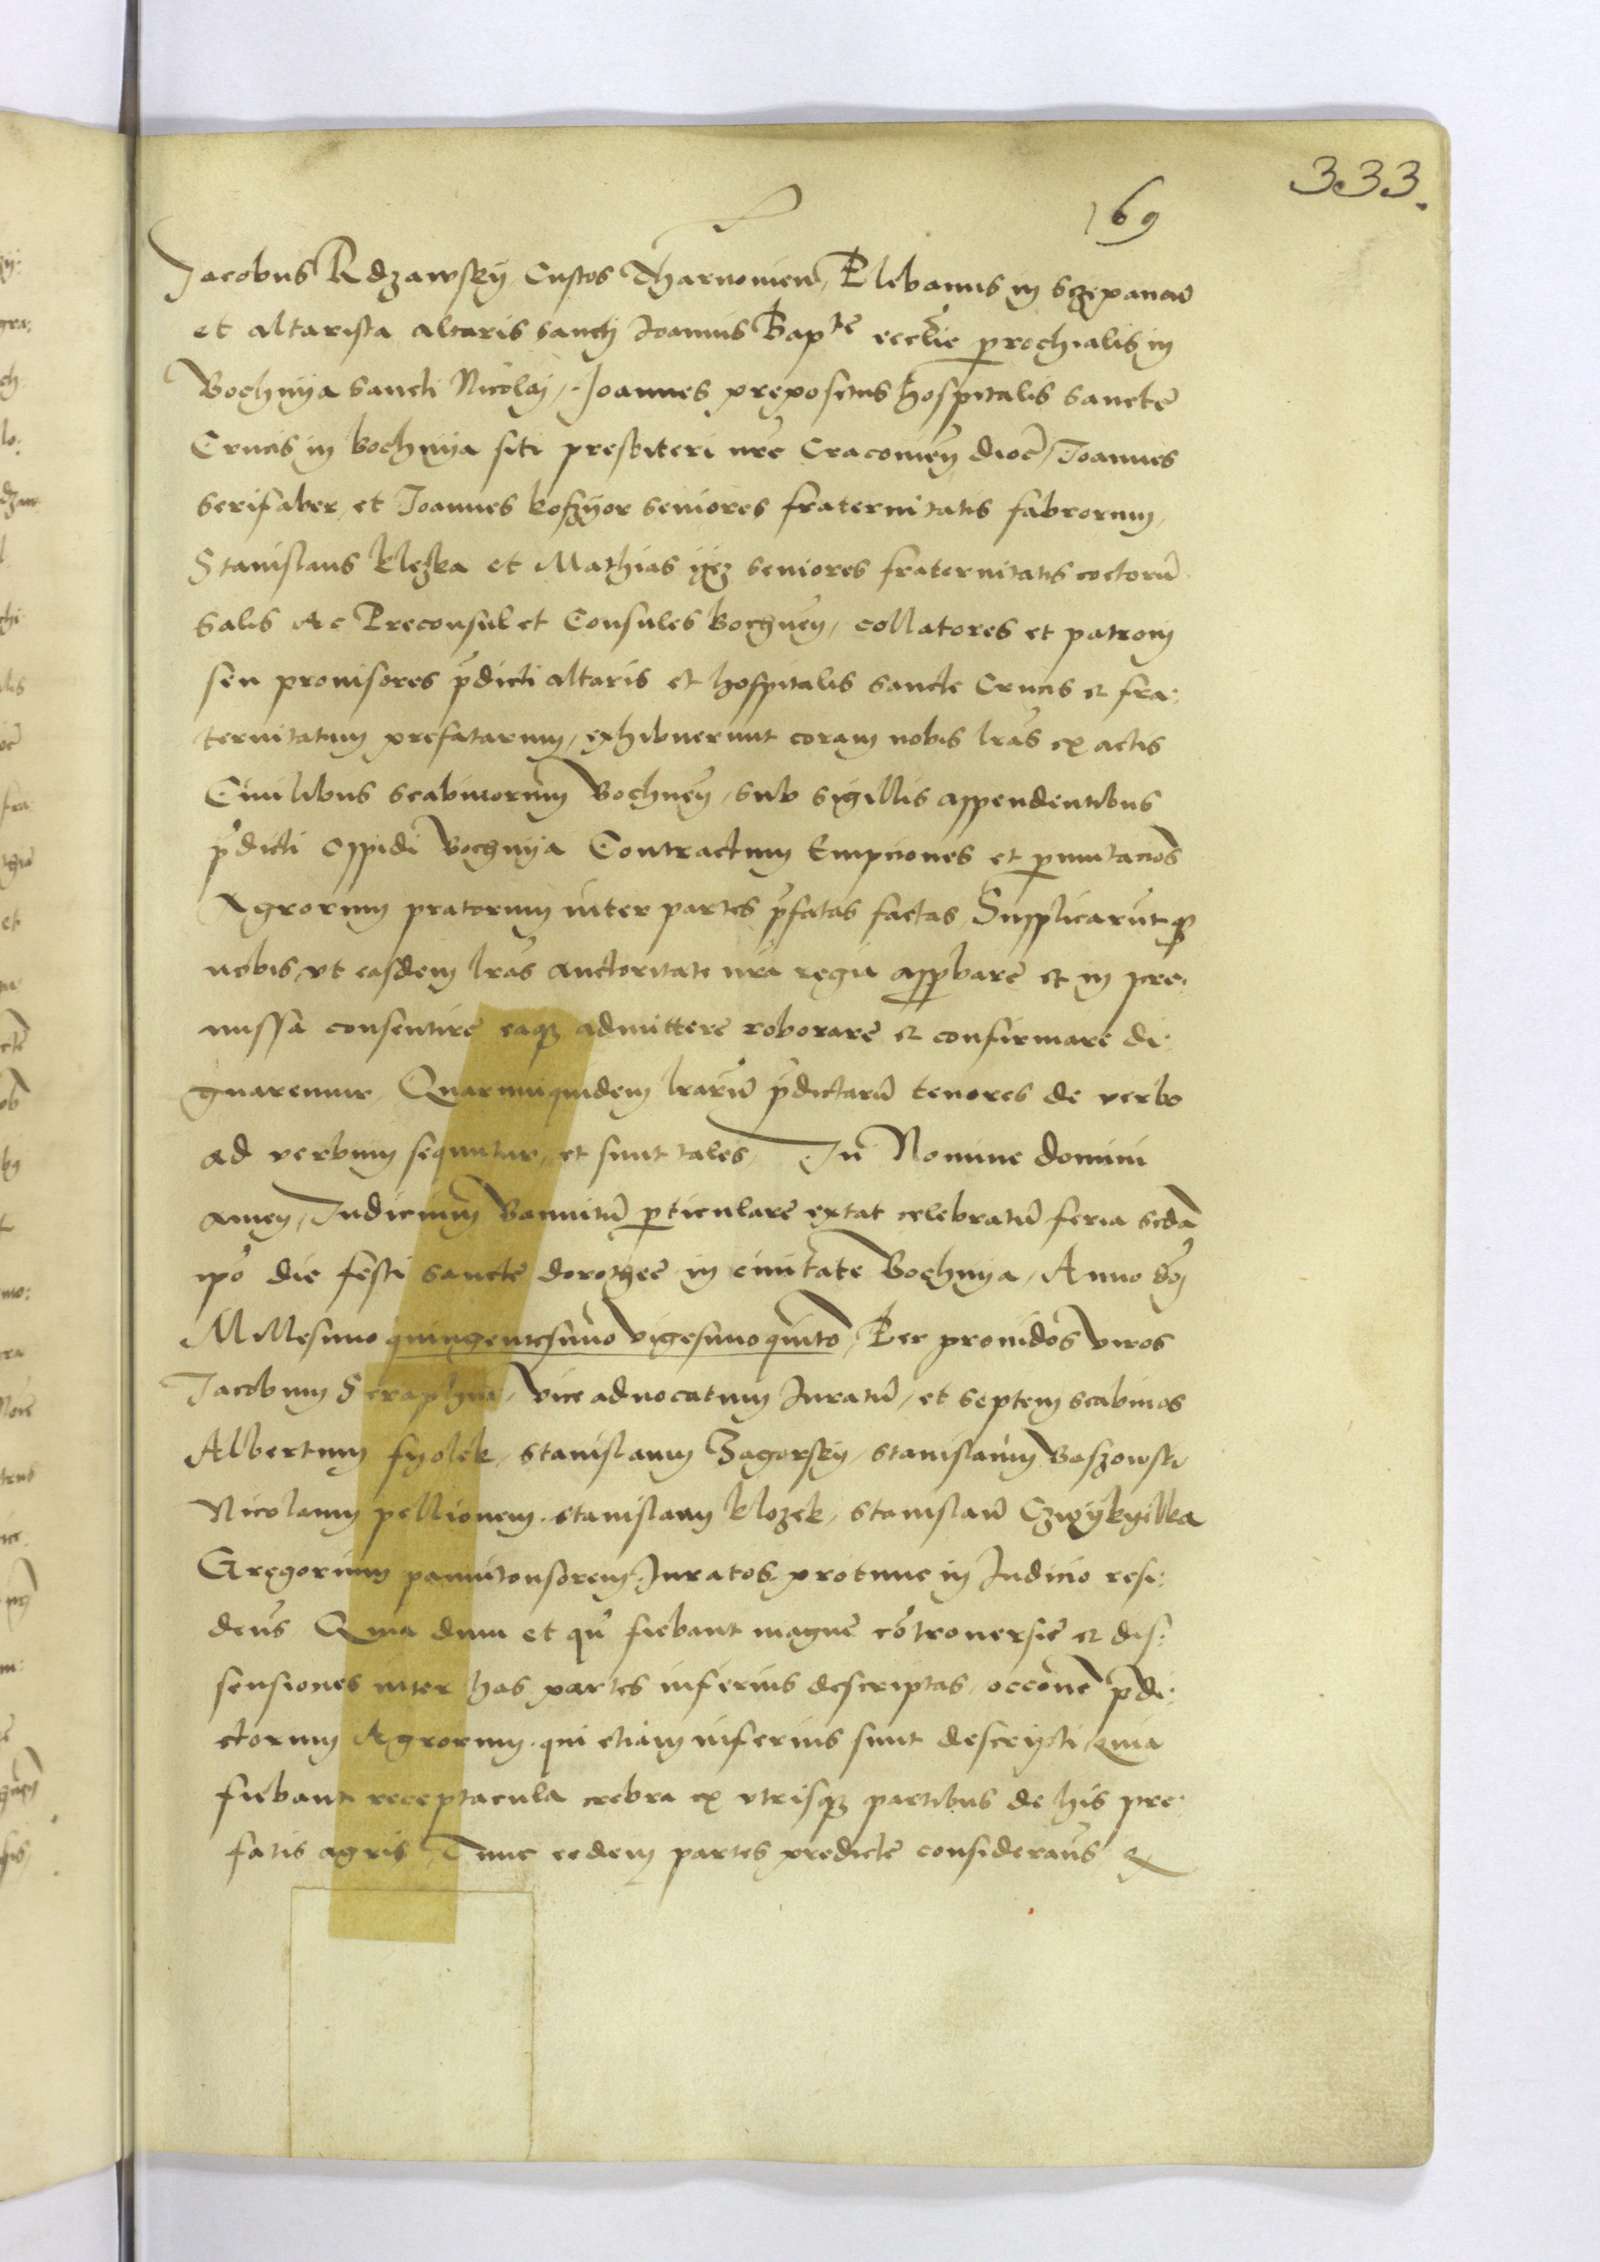 333.
169
Jacobus Rdzawsky Custos Tharnovien, Plebanus in Sczepanow
et altarista altaris sancti Joannis Bapte ecclie parochialis in
Bochnya sancti Nicolai, Joannes prepositus hospitalis sancte
Crucis in Bochnya siti presbiteri nre Cracovien dioc, Joannes
serifaber et Joannes koszyor seniores fraternitatis fabrorum,
Stanislaus kleska et Mathias yez seniores fraternitatis coctorū
salis Ac Preconsul et Consules Bochnen, collatores et patroni
seu provisores pdicti altaris et hospitalis sancte Crucis et fra:
ternitatum prefatarum, exhibuerunt coram nobis lras ex actis
Civilibus scabinorum Bochnen, sub sigillis appendentibus
pdicti oppidi Bochnya Contractum Empciones et pmutacōs
Agrorum pratorum inter partes pfatas factas Supplicarūtq
nobis, vt easdem lras auctoritate nra regia appbare et in pre:
missa consentire eaq admittere roborare et confirmare di:
gnaremur, Quarumquidem lrarū pdictarū tenores de verbo
ad verbum sequntur, et sunt tales, In Nomine domini
amen, Judicium Bannitū pticulare extat celebratū feria scda
ipo die festi sancte dorothee in civitate Bochnya, Anno dni
Millesimo quingentesimo vigesimo quinto, Per providos viros
Jacobum Seraphyn, vice advocatum Juratū, et septem scabinos
Albertum fyolek, stanislaum Zagorsky, stanislaum Baszowsky
Nicolaum pellionem, stanislaum klozek, stanislaū Czwykyelka
Gregorium pannitonsorem Juratos, protunc in Judicio resi:
dens Quia dum et qn fiebant magne cōtroversie et dis:
sensiones inter has partes inferius descriptas, occōne pdi:
ctorum Agrorum, qui etiam inferius sunt descripti, quia
fiebant receptacula crebra ex vtrisq partibus de his pre:
fatis agris, Tunc eedem partes predicte considerans et